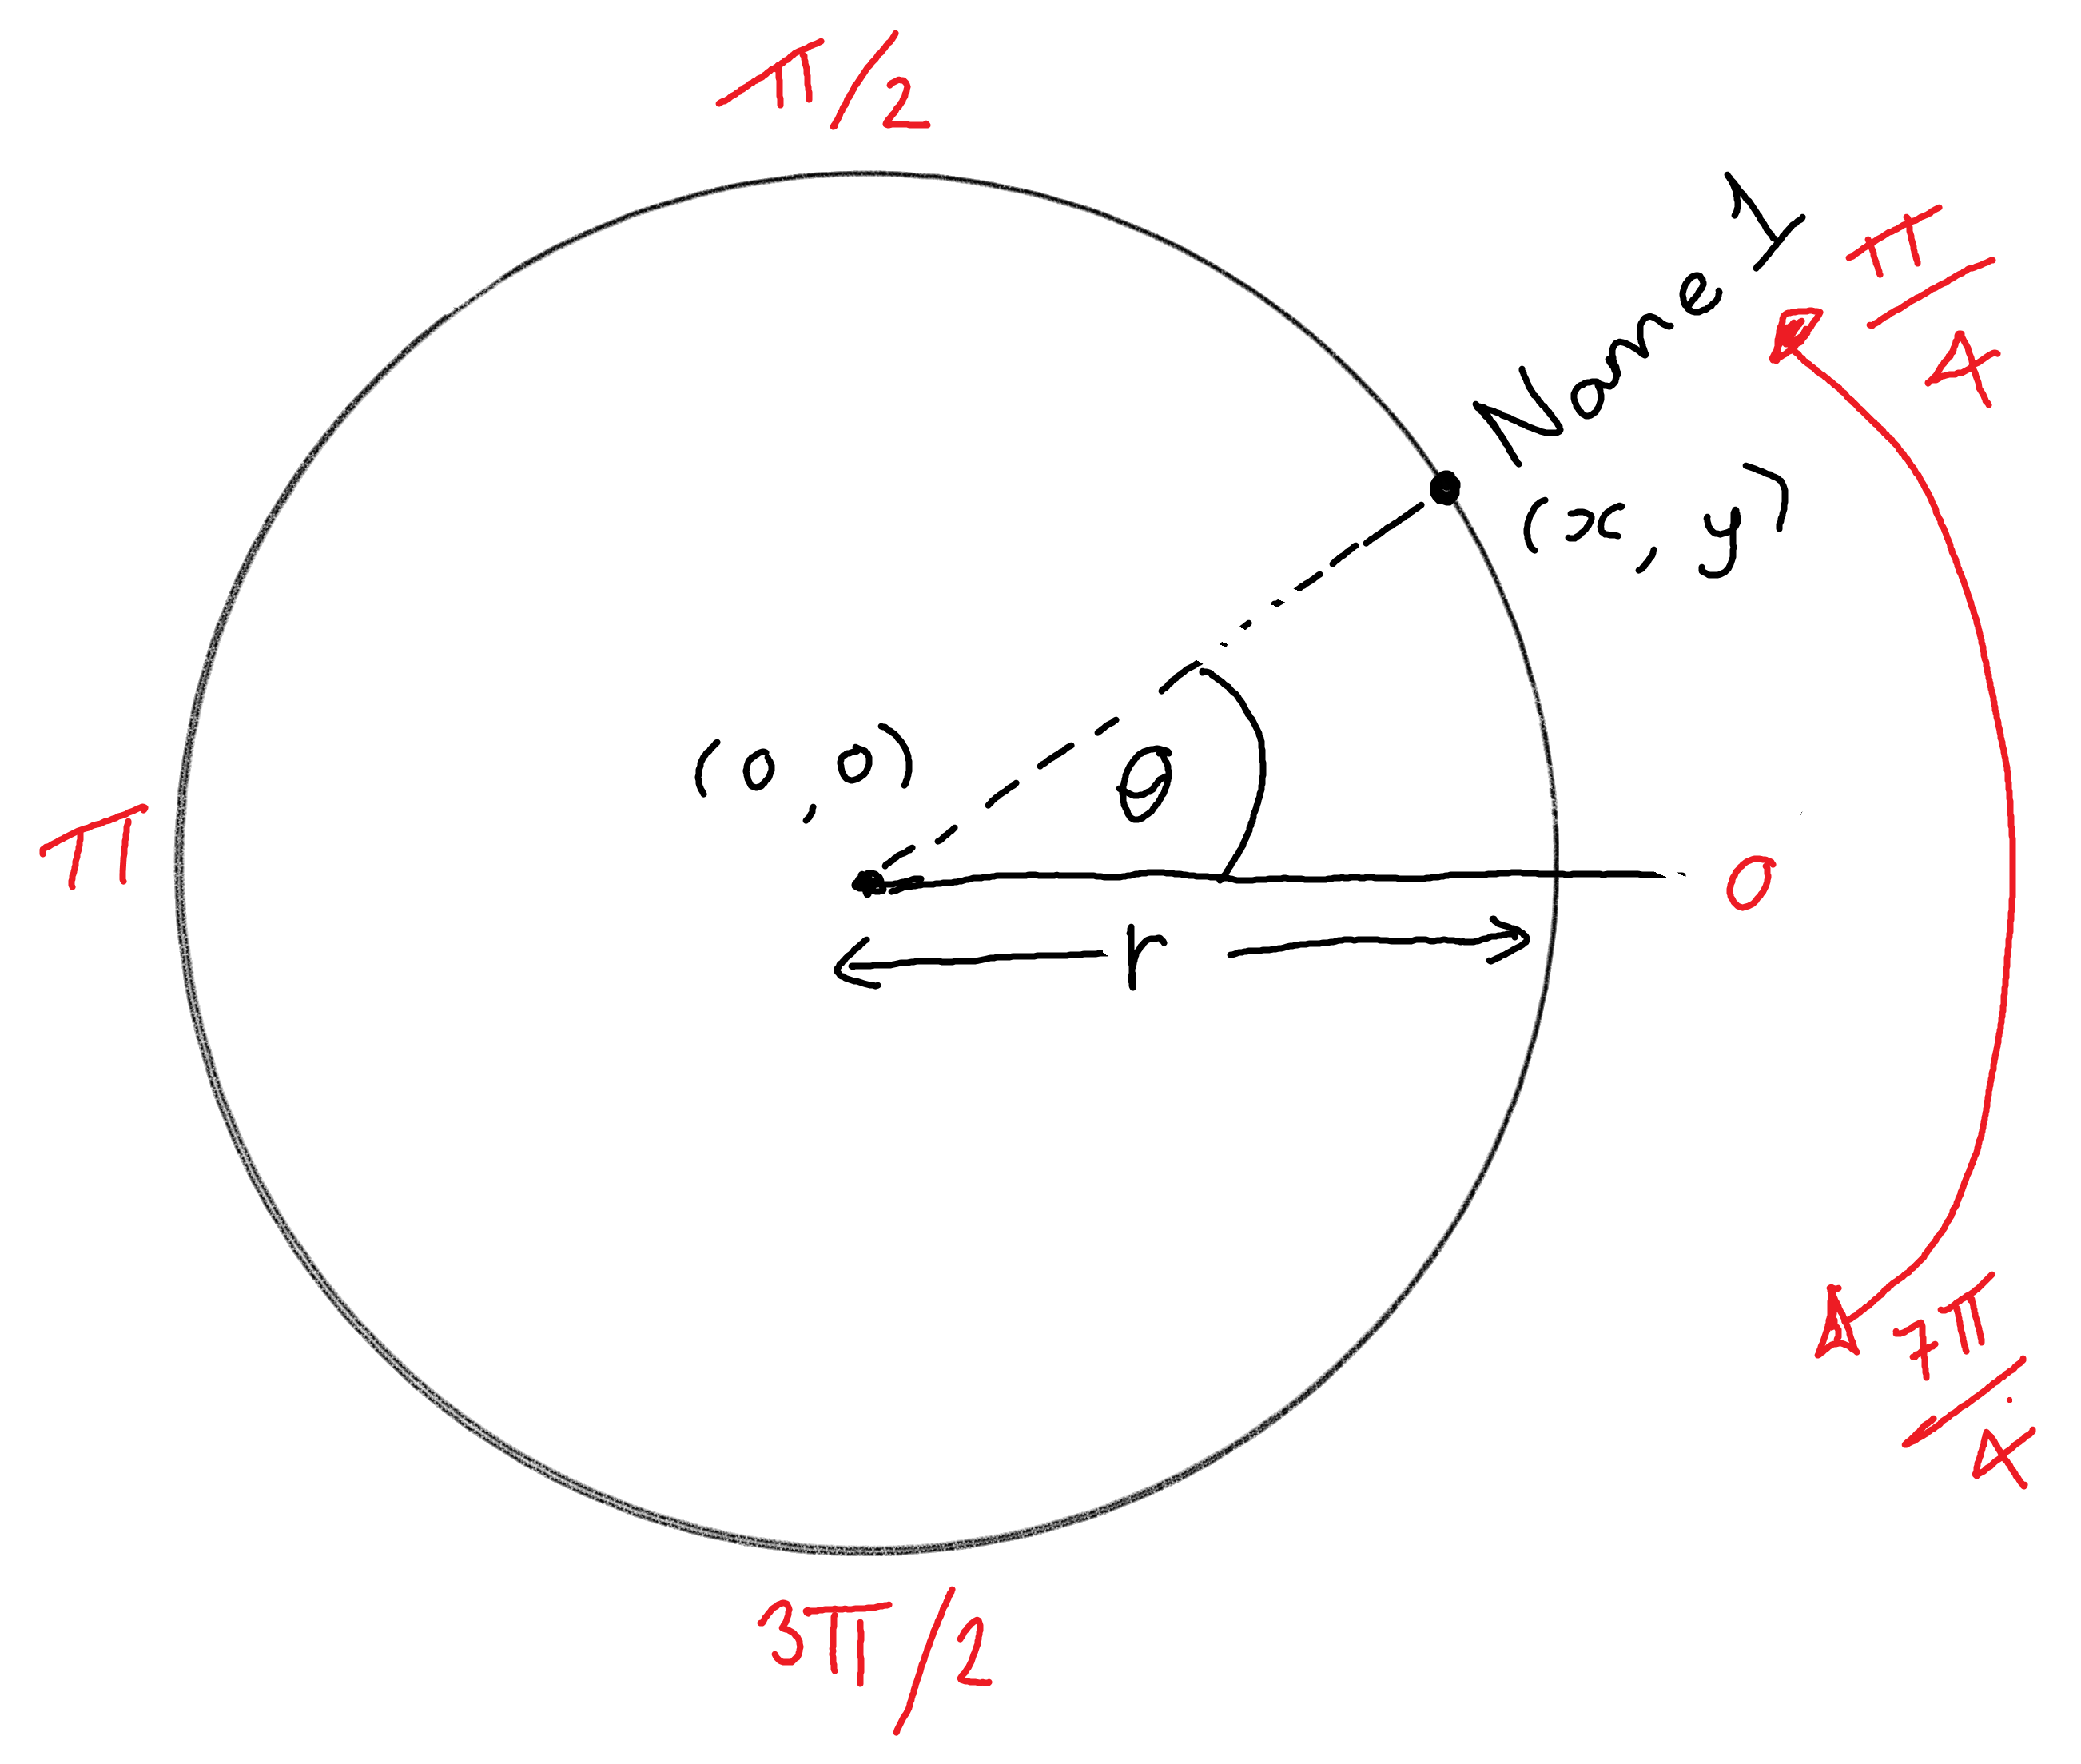 π/2
Name 1
π/4
(x, y)
(0, 0)
θ
π
0
r
7π/4
3π/2